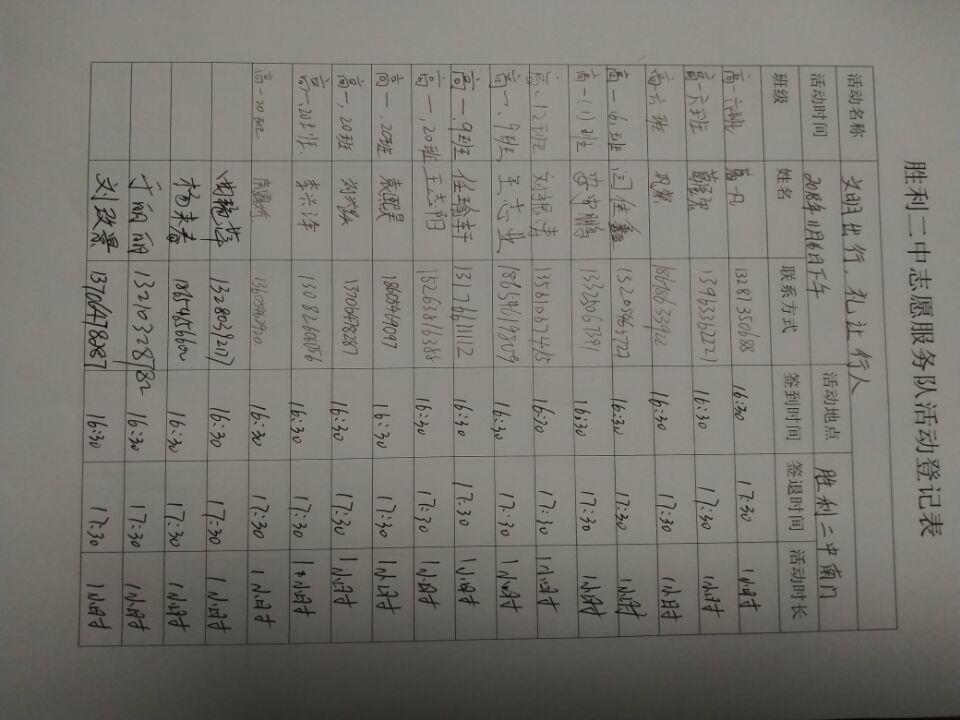 胜利二中志愿服务队活动登记表
活动名称 文明出行,礼让行人
活动时间 2018年11月6日下午 活动地点 胜利二中南门
班级 姓名 联系方式 签到时间 签退时间 活动时长
高一六班 葛一凡 13287350688 16:30 17:30 1小时
高一六班 13963362221 16:30 17:30 1小时
高六班 16:30 17:30 1小时
高一.6.班 闫佳鑫 13205465727 16:30 17:30 1小时
高一11班 16:30 17:30 1小时
高.12班 13581032745 16:30 17:30 1小时
高一、9班 王志业 18654619809 16:30 17:30 1小时
高一.9班 任琦轩 13176611112 16:30 17:30 1小时
高一,20班 王志阳 15263816388 16:30 17:30 1小时
高一.20班 袁熙昊 18605469097 16:30 17:30 1小时
高一,20班 13706478287 16:30 17:30 1小时
高一.20班. 李兴泽 16:30 17:30 1小时
高一20班 13605462920 16:30 17:30 1小时
13280319217 16:30 17:30 1小时
杨来春 18654656600 16:30 17:30 1小时
于丽丽 13210328782 16:30 17:30 1小时
刘政景 13706478287 16:30 17:30 1小时